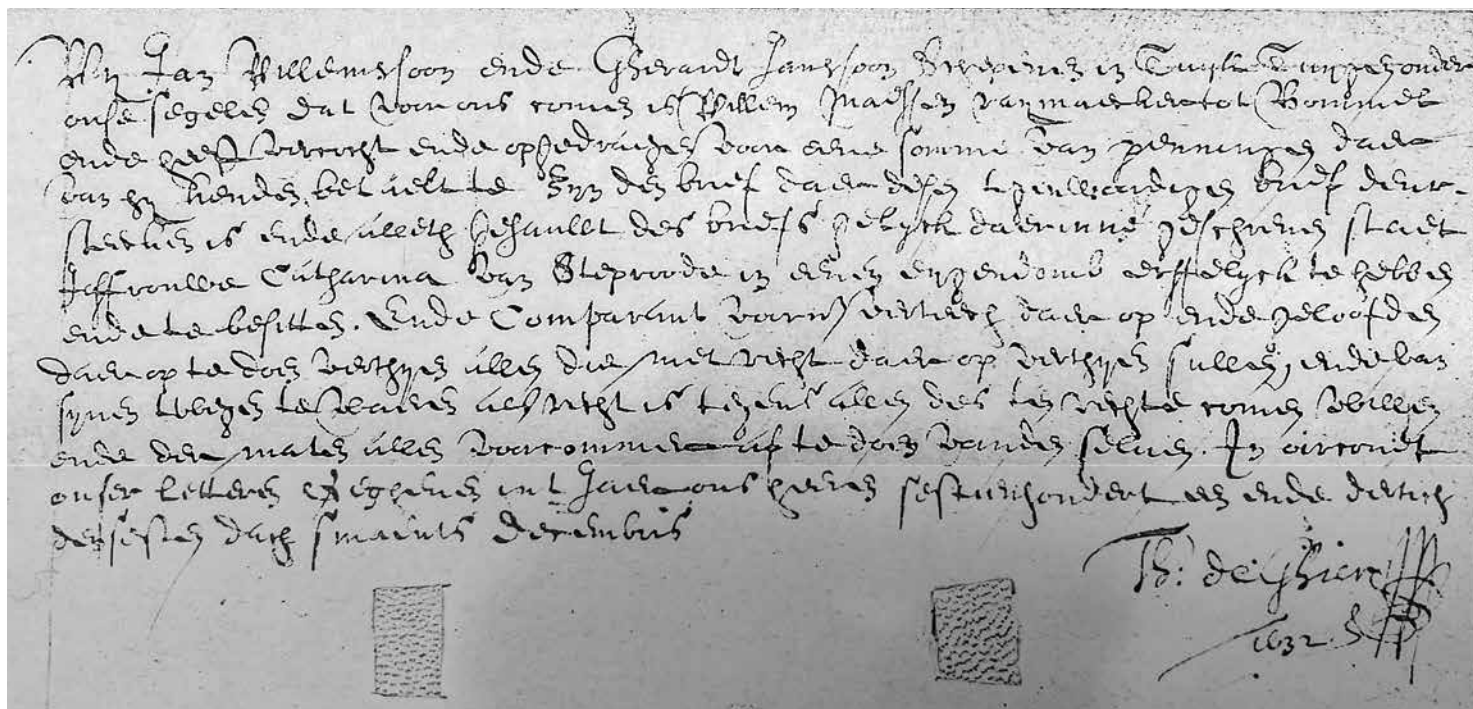 Wij Jan Willemssoon ende Gherardt Janssoon Schepenen in Tuyll Tuygen onder
onse segelen dat voor ons comen is Willem Maessen raymaecker tot Bommel
ende heeft vercocht ende opgedragen voor eene somme van penningen daer
van hy kenden betaelt te zyn den brief daer desen tegenwoirdigen brief deur-
steecken is ende alleth Jehaullt des briefs gelyck daerinne geschreven staet
Joffrouwe Catharina van Steproode in eenen eygendomb erffelyck te hebben
ende te besitten. Ende Comparant voors verteech daer op ende geloofden
daer op te doen verthyen allen die met recht daer op verthyen sullen, ende van
synen wegen te waeren als recht is tegens allen des ten rechte comen willen
ende der maten allen voorcommer af te doen vanden selven. In oirconde
onser letteren Gegheven int Jaer ons heeren sesthienhondert een ende dertich
den sesten dach smaents Decembris
Th: de Ghier
1632